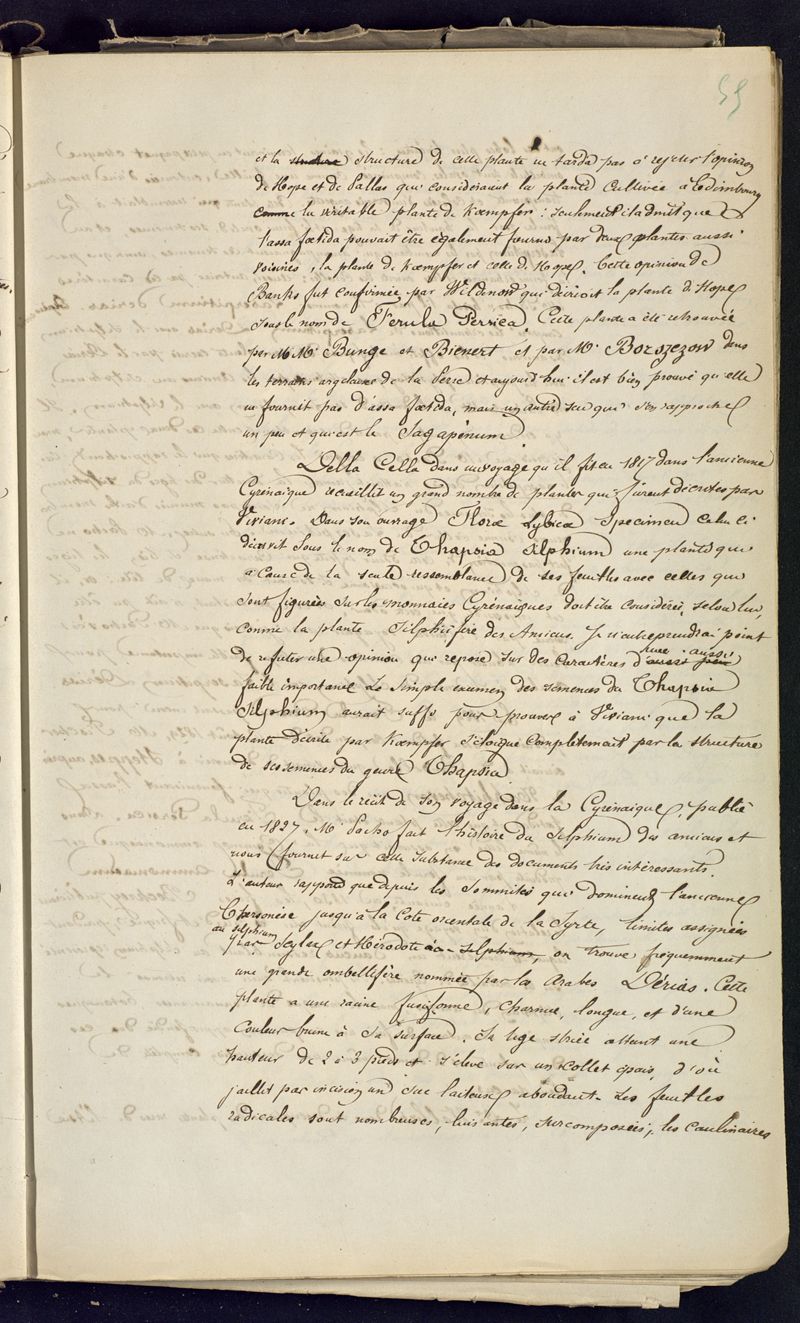 55
et la structure structure de cette plante ne tarda pas à rejeter l'opinion
de Hope et de Pallas qui considéraient la plante cultivée à Edimbourg
comme la véritable plante de Kœmpfer : seulement il admit que
l'assa fœtida pouvait être également fourni par deux plantes aussi
voisines, la plante de Kœmpfer et celle de Hope. Cette opinion de
Banks fut confirmée par Wildenow qui décrivit la plante d'Hope
sous le nom de Ferula Persica. Cette plante a été retrouvée
par M M. Bunge et Bienert et par Mr Borszezow dans
les terrains argelaires de la Perse et aujourd'hui il est bien prouvé qu'elle
ne fournit pas d'assa fœtida, mais un autre suc qui s'en rapproche
un peu et qui est le Sagapénum.
Della Cella dans un voyage qu'il fit en 1817 dans l'ancienne
Cyrénaïque recueillit un grand nombre de plantes qui furent décrites par
Viviani. Dans son ouvrage Floræ Lybicæ Specimen celui ci
décrivit sous le nom de Thapsia Silphium une plante qui
à cause de la seule ressemblance de ses feuilles avec celles qui
sont figurées sur les monnaies Cyrénaiques doit être considérée, selon lui,
comme la plante Silphifère des Anciens. Je n'entreprendrai point
de réfuter une opinion qui repose sur des caractères d'une aussi
faible importance Le simple examen des semences du Thapsia
Silphium aurait suffi pour prouver à Viviani que la
plante décrite par Kœmpfer s'éloigne complètement par la structure
de ses semences du genre Thapsia.
Dans le récit de son voyage dans la Cyrénaïque, publié
en 1827, Mr Pacho fait l'histoire du Silphium des anciens et
nous fournit sur cette substance des documents très intéressants.
L'auteur rapporte que depuis les sommités qui dominent l'ancienne
Chersonèse jusqu'à la Côte orientale de la Syrte, limites assignées
au silphium
par Scylax et Hérodote au Silphium, on trouve fréquemment
une grande ombellifère nommée par les Arabes Dérias. Cette
plante a une racine fusiforme, charnue, longue, et d'une
couleur brune à sa surface. Sa tige striée atteint une
hauteur de 2 à 3 pieds et s'élève sur un collet épais, d'où
jaillit par incision un suc laiteux abondant. Les feuilles
radicales sont nombreuses, luisantes, surcomposées, les caulinaires